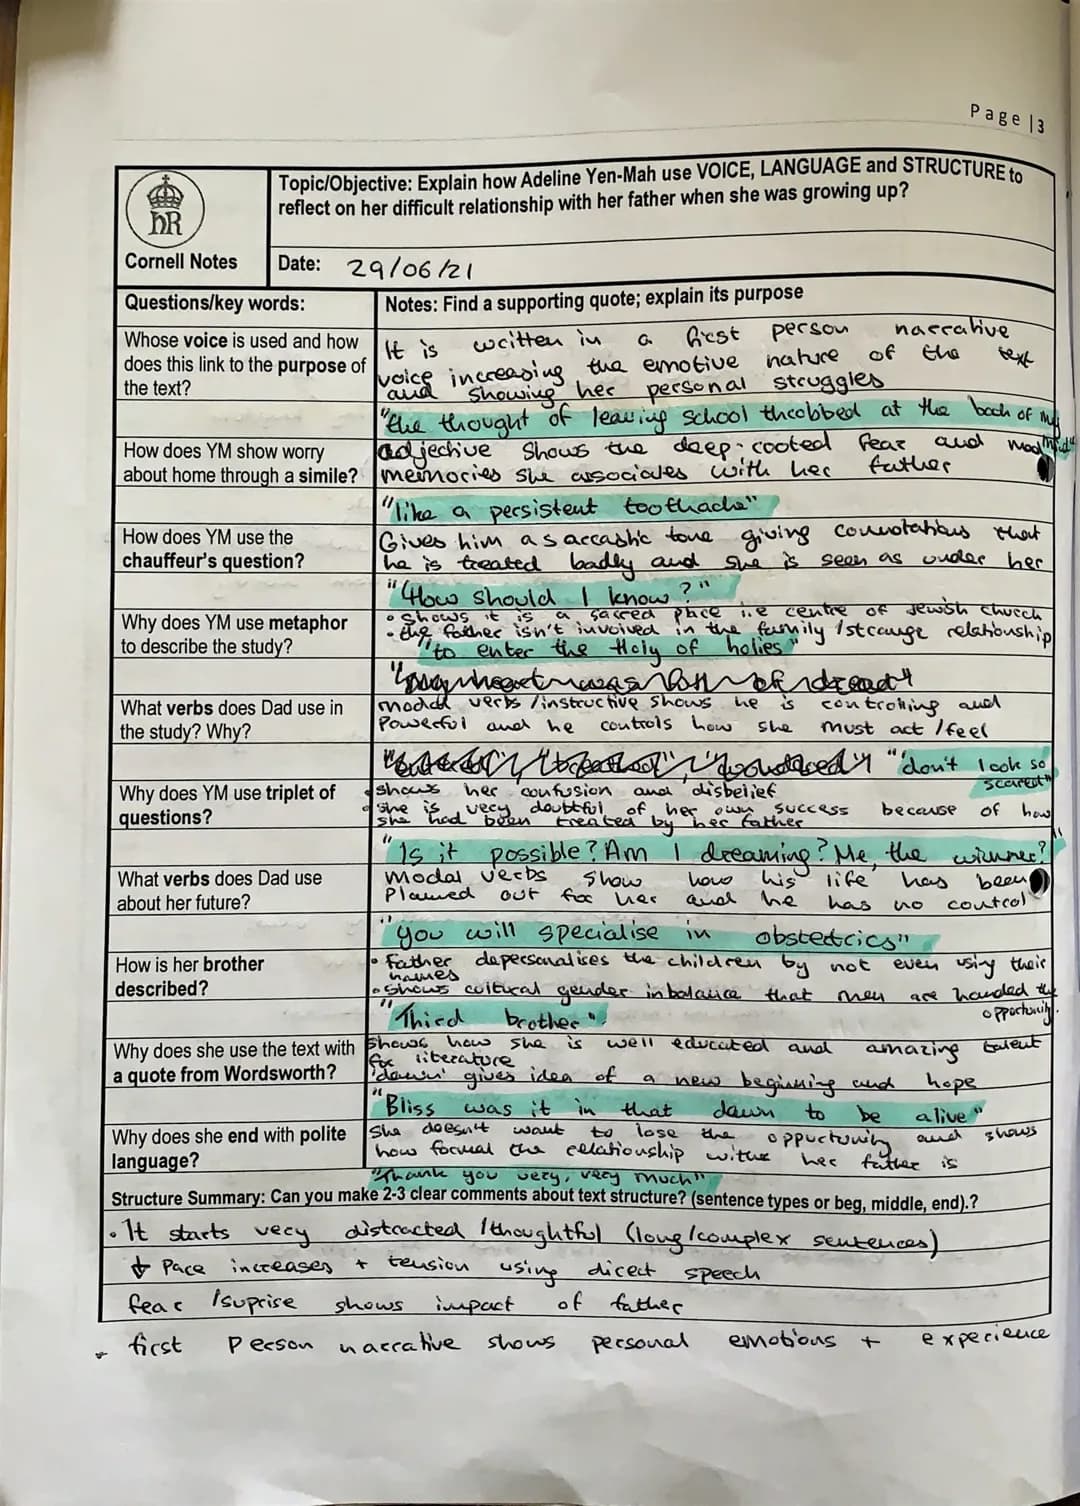 Page |3
hR
Cornell Notes
Topic/Objective: Explain how Adeline Yen-Mah use VOICE, LANGUAGE and STRUCTURE to
reflect on her difficult relationship with her father when she was growing up?
Date: 29/06/21
Questions/key words:
Notes: Find a supporting quote; explain its purpose
Whose voice is used and how
does this link to the purpose of
the text?
It is written in a first person narrative
voice increasing the emotive nature of the text
and showing her personal struggles
"the thought of leaving school throbbed at the back of my
mind"
How does YM show worry
about home through a simile?
adjective shows the deep-rooted fear and
memories she associates with her father
"like a persistent toothache"
How does YM use the
chauffeur's question?
Gives him a sarcastic tone giving connotations that
he is treated badly and she is seen as under her
"How should I know?"
Why does YM use metaphor
to describe the study?
• Shows it is a sacred place i.e centre of Jewish church
• the father isn't involved in the family /strange relationship
"to enter the Holy of holies"
What verbs does Dad use in
the study? Why?
modal verbs /instructive shows he is controlling and
Powerful and he controls how she must act /feel
"don't look so
scared"
Why does YM use triplet of
questions?
shows her confusion and disbelief
she is very doubtful of her own success because of how
she had been treated by her father
"Is it possible? Am I dreaming? Me, the winner?"
What verbs does Dad use
about her future?
Modal verbs show how his life has been
Planned out for her and he has no control
"you will specialise in obstetrics"
How is her brother
described?
• Father depersonalises the children by not even using their
names
• Shows cultural gender inbalance that men are handed the
opportunity.
"Third brother".
Why does she use the text with
a quote from Wordsworth?
Shows how she is well educated and amazing talent
for literature
'dawn' gives idea of a new beginning and hope
"Bliss was it in that dawn to be alive"
Why does she end with polite
language?
She doesn't want to lose the oppurtunity and shows
how formal the relationship withe her father is
"Thank you very, very much"
Structure Summary: Can you make 2-3 clear comments about text structure? (sentence types or beg, middle, end).?
• It starts very distracted /thoughtful (long/complex sentences)
↓ Pace increases + tension using direct speech
fear /suprise shows impact of father
• first Person narrative shows personal emotions + experience